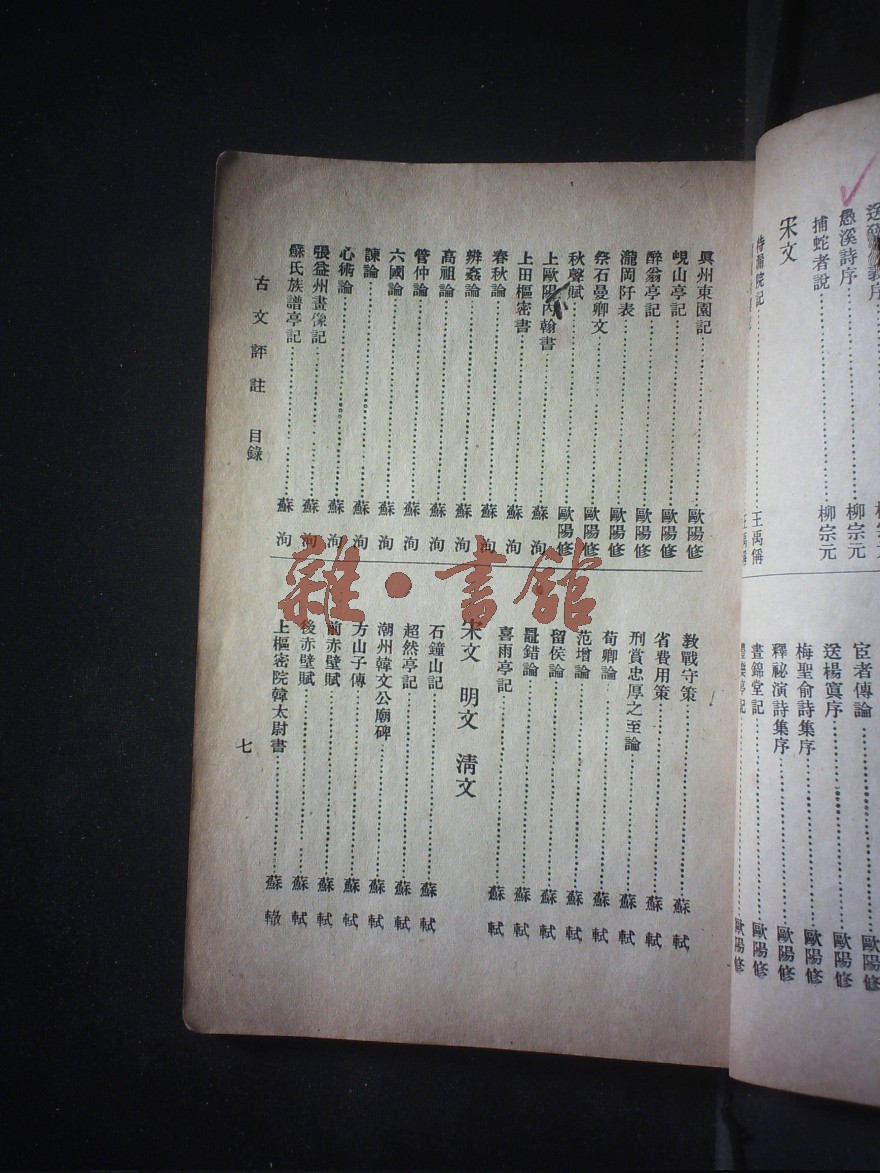 送薛存義序
愚溪詩序……柳宗元
捕蛇者說……柳宗元
宋文
待漏院記……王禹偁
王禹偁
宦者傳論……歐陽修
送楊寘序……歐陽修
梅聖俞詩集序……歐陽修
釋祕演詩集序……歐陽修
晝錦堂記……歐陽修
豐樂亭記……歐陽修
眞州東園記……歐陽修
峴山亭記……歐陽修
醉翁亭記……歐陽修
瀧岡阡表……歐陽修
祭石曼卿文……歐陽修
秋聲賦……歐陽修
上歐陽內翰書……蘇洵
上田樞密書……蘇洵
春秋論……蘇洵
辨姦論……蘇洵
高祖論……蘇洵
管仲論……蘇洵
六國論……蘇洵
諫論……蘇洵
心術論……蘇洵
張益州畫像記……蘇洵
蘇氏族譜亭記……蘇洵
教戰守策……蘇軾
省費用策……蘇軾
刑賞忠厚之至論……蘇軾
荀卿論……蘇軾
范增論……蘇軾
留侯論……蘇軾
鼂錯論……蘇軾
喜雨亭記……蘇軾
宋文 明文 清文
石鐘山記……蘇軾
超然亭記……蘇軾
潮州韓文公廟碑……蘇軾
方山子傳……蘇軾
前赤壁賦……蘇軾
後赤壁賦……蘇軾
上樞密院韓太尉書……蘇轍
古文評註 目錄
七
雜·書館